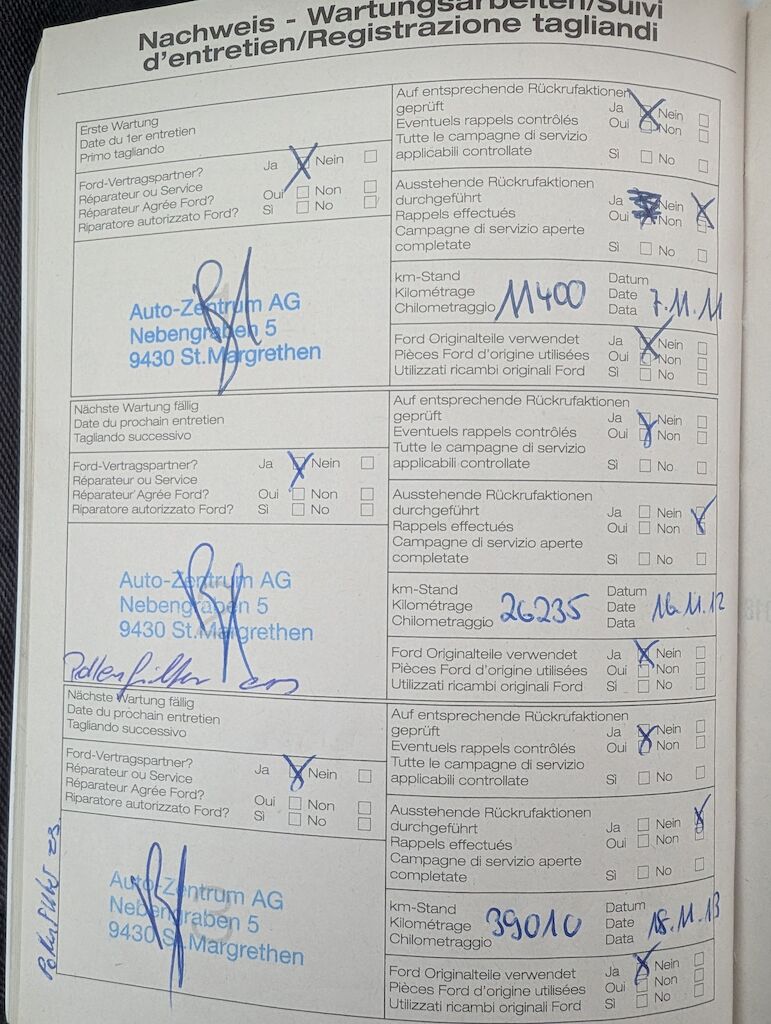 Nachweis - Wartungsarbeiten/Suivi
d'entretien/Registrazione tagliandi
Erste Wartung
Date du 1er entretien
Primo tagliando
Ford-Vertragspartner? Ja Nein
Réparateur ou Service
Réparateur Agrée Ford? Oui Non
Riparatore autorizzato Ford? Sì No
Auto-Zentrum AG
Nebengraben 5
9430 St.Margrethen
Auf entsprechende Rückrufaktionen
geprüft Ja Nein
Eventuels rappels contrôlés Oui Non
Tutte le campagne di servizio
applicabili controllate Sì No
Ausstehende Rückrufaktionen
durchgeführt Ja Nein
Rappels effectués Oui Non
Campagne di servizio aperte
completate Sì No
km-Stand Datum
Kilométrage 11400 Date 7.11.11
Chilometraggio Data
Ford Originalteile verwendet Ja Nein
Pièces Ford d'origine utilisées Oui Non
Utilizzati ricambi originali Ford Sì No
Nächste Wartung fällig
Date du prochain entretien
Tagliando successivo
Ford-Vertragspartner? Ja Nein
Réparateur ou Service
Réparateur Agrée Ford? Oui Non
Riparatore autorizzato Ford? Sì No
Auto-Zentrum AG
Nebengraben 5
9430 St.Margrethen
Pollenfilter
Auf entsprechende Rückrufaktionen
geprüft Ja Nein
Eventuels rappels contrôlés Oui Non
Tutte le campagne di servizio
applicabili controllate Sì No
Ausstehende Rückrufaktionen
durchgeführt Ja Nein
Rappels effectués Oui Non
Campagne di servizio aperte
completate Sì No
km-Stand Datum
Kilométrage 26235 Date 16.11.12
Chilometraggio Data
Ford Originalteile verwendet Ja Nein
Pièces Ford d'origine utilisées Oui Non
Utilizzati ricambi originali Ford Sì No
Nächste Wartung fällig
Date du prochain entretien
Tagliando successivo
Ford-Vertragspartner? Ja Nein
Réparateur ou Service
Réparateur Agrée Ford? Oui Non
Riparatore autorizzato Ford? Sì No
Auto-Zentrum AG
Nebengraben 5
9430 St.Margrethen
Pollenfilter
Auf entsprechende Rückrufaktionen
geprüft Ja Nein
Eventuels rappels contrôlés Oui Non
Tutte le campagne di servizio
applicabili controllate Sì No
Ausstehende Rückrufaktionen
durchgeführt Ja Nein
Rappels effectués Oui Non
Campagne di servizio aperte
completate Sì No
km-Stand Datum
Kilométrage 39010 Date 18.11.13
Chilometraggio Data
Ford Originalteile verwendet Ja Nein
Pièces Ford d'origine utilisées Oui Non
Utilizzati ricambi originali Ford Sì No